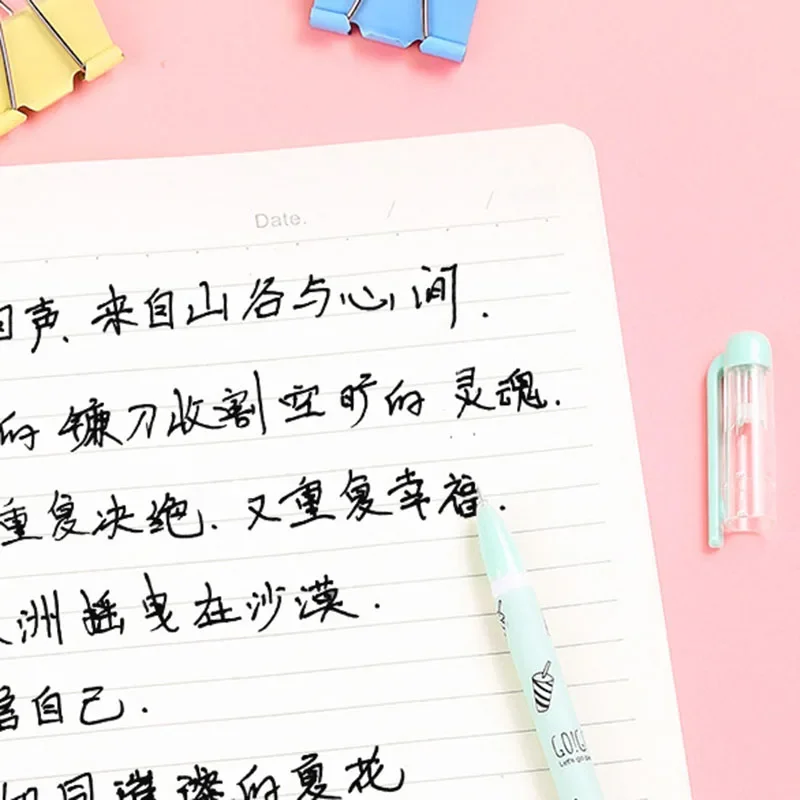 Date. / /
回声. 来自山谷与心间.
的 镰刀收割空旷的 灵魂.
重复决绝. 又重复幸福.
洲 摇曳在沙漠.
自己.
如同璀璨的夏花
GO!G
Let's go